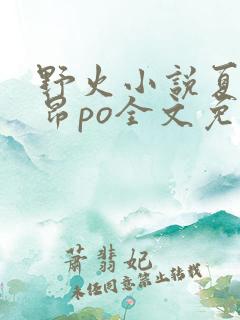 野火小說夏
昂po全文免
蕭翡妃
未任同意禁止转载